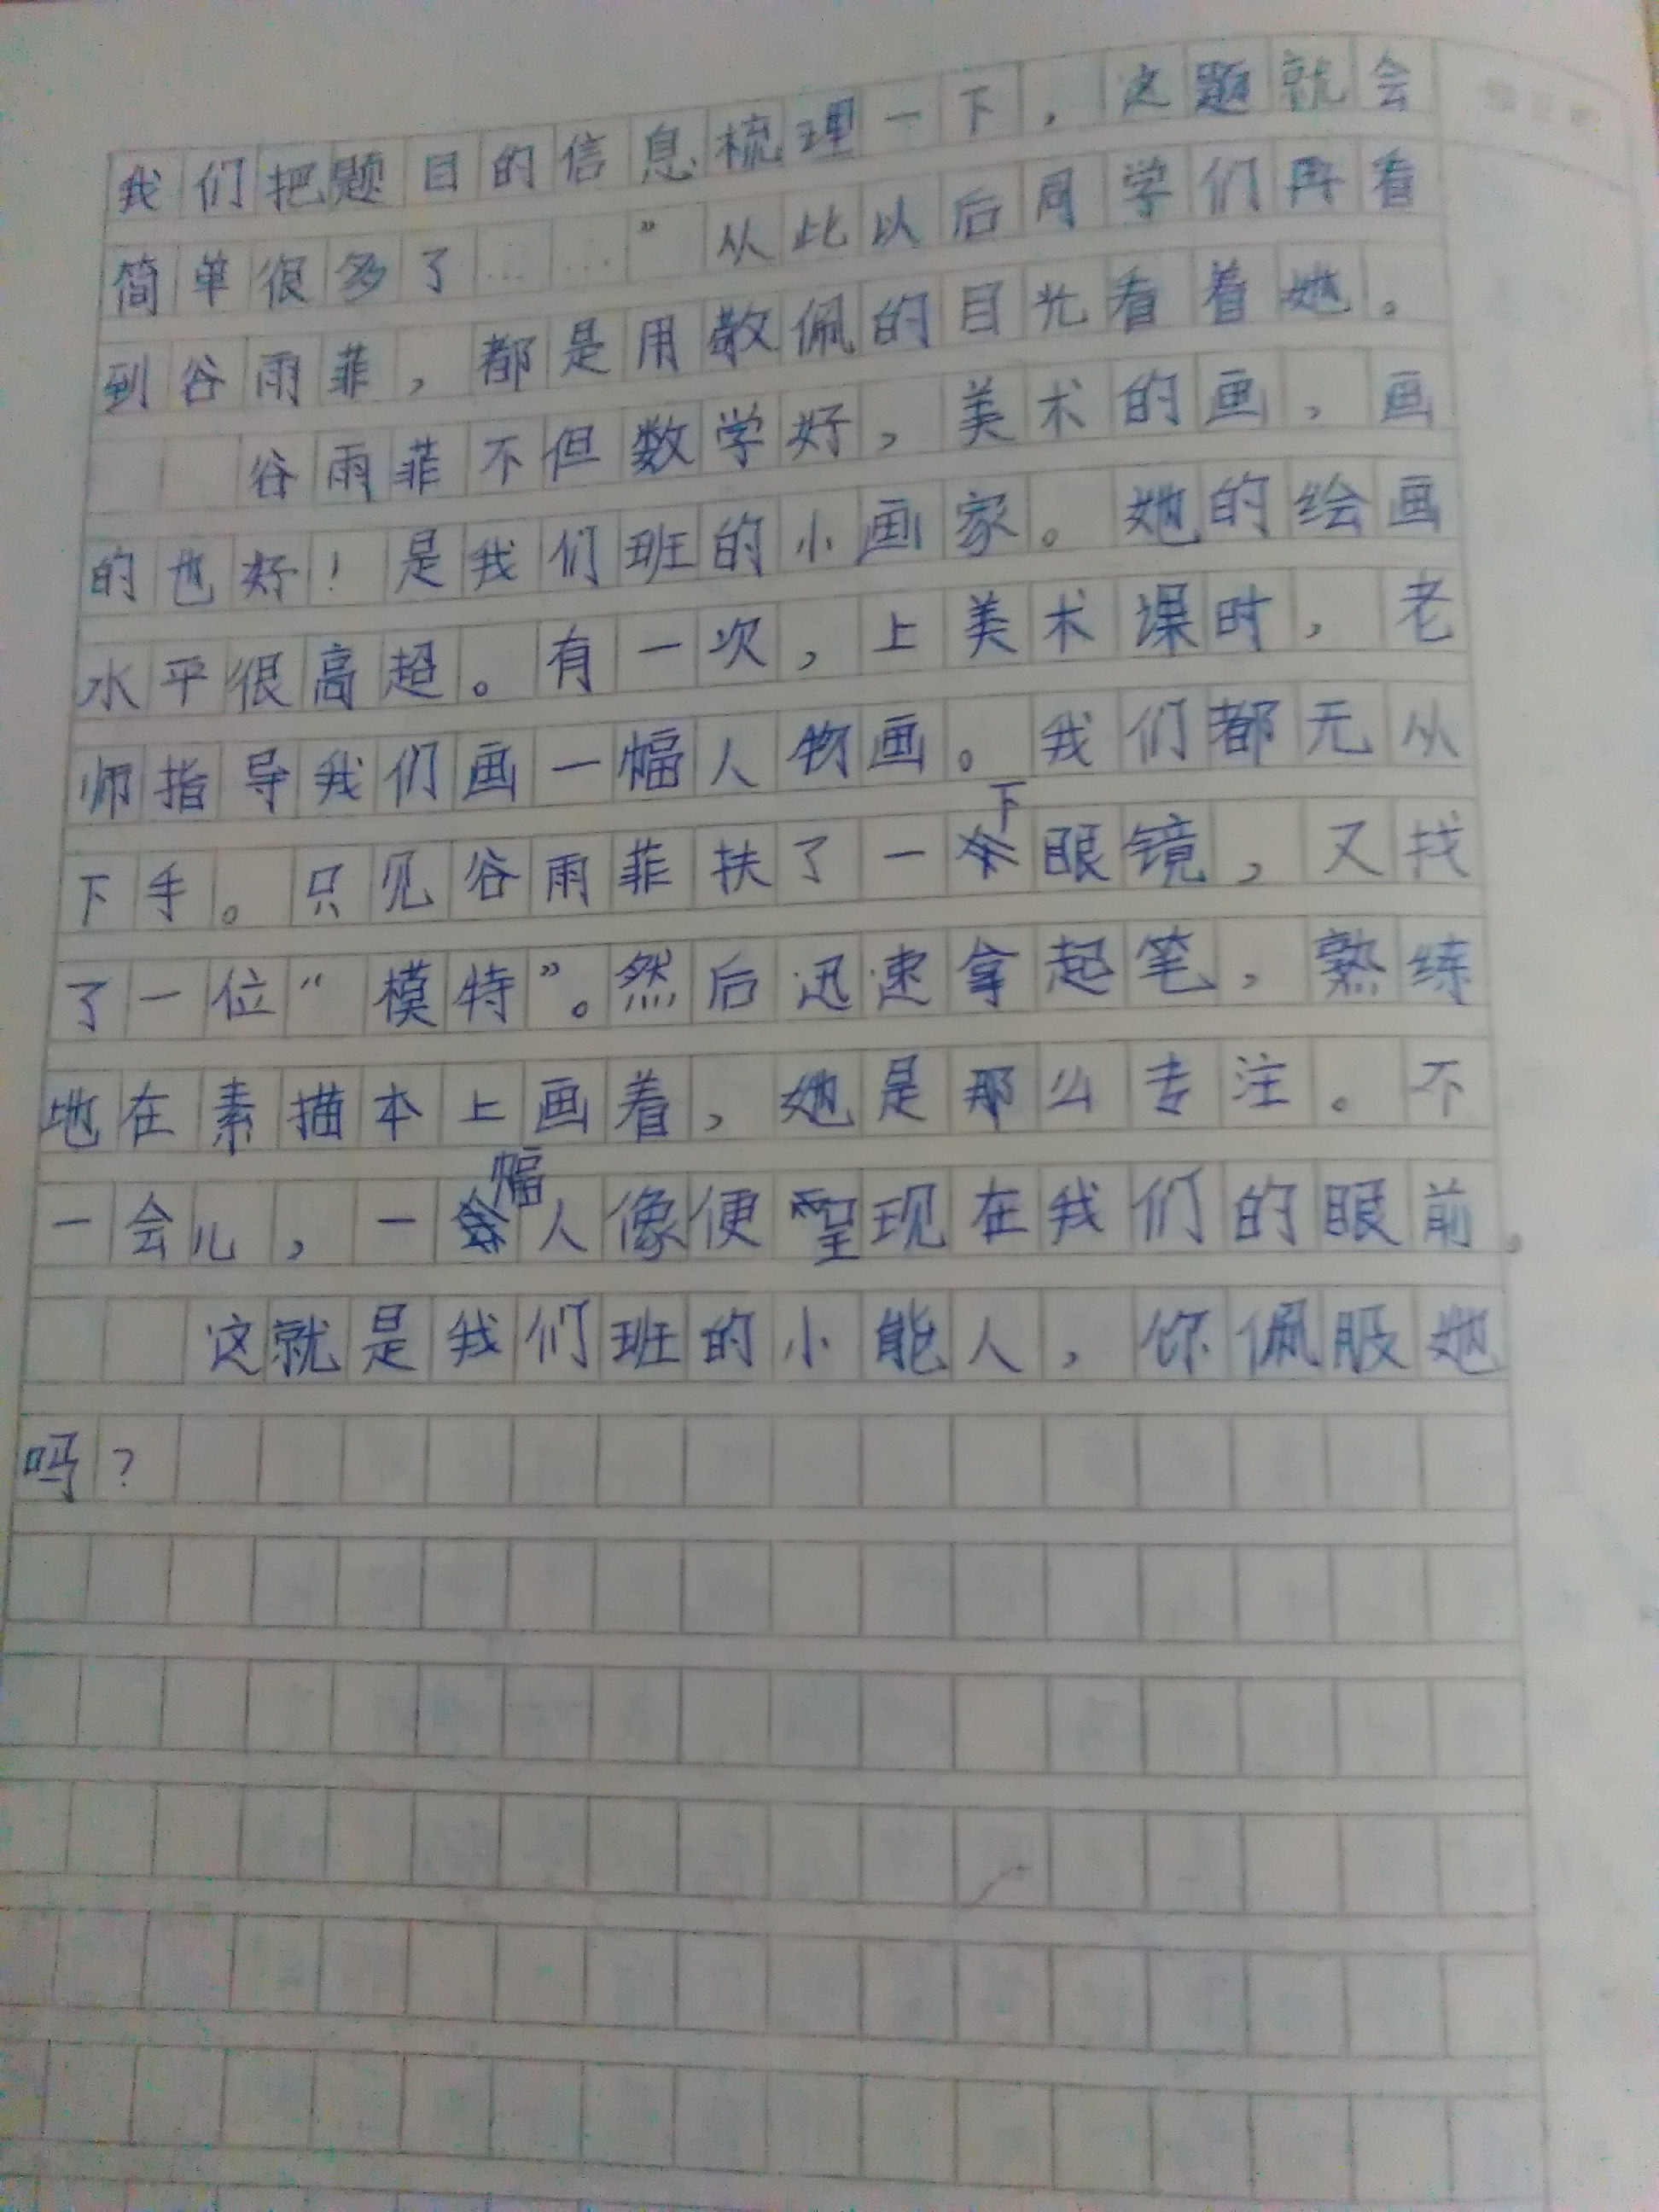 我们把题目的信息梳理一下，这题就会
简单很多了……”从此以后同学们再看
到谷雨菲，都是用敬佩的目光看着她。
谷雨菲不但数学好，美术的画，画
的也好！是我们班的小画家。她的绘画
水平很高超。有一次，上美术课时，老
师指导我们画一幅人物画。我们都无从
下手。只见谷雨菲扶了一下眼镜，又找
了一位“模特”。然后迅速拿起笔，熟练
地在素描本上画着，她是那么专注。不
一会儿，一幅人像便现在我们的眼前。
这就是我们班的小能人，你佩服她
吗？